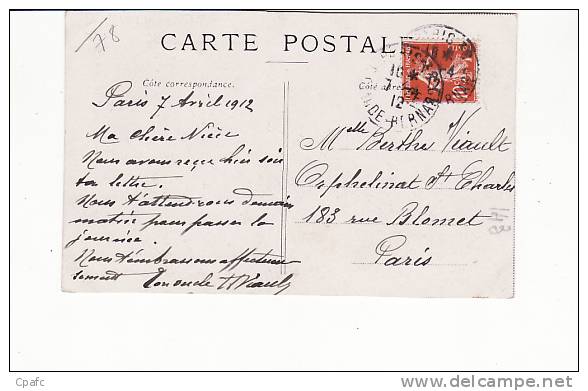 78
CARTE POSTALE
Côte correspondance.
Paris 7 Avril 1912
Ma chère Nièce
Nous avons reçu hier soir
ta lettre.
Nous t'attendrons demain
matin pour passer la
journée.
Nous t'embrassons affectueu
sement
Ton oncle HViault
Côte adresse
Melle Berthe Viault
Orphelinat St Charles
183 rue Blomet
Paris
Cpafc
www.delcampe.net